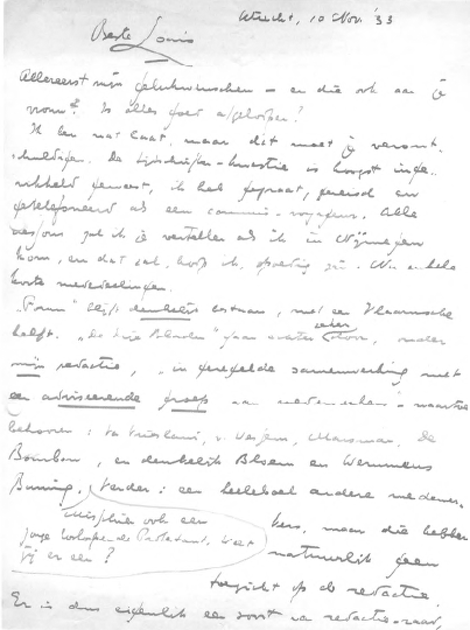 Utrecht, 10 Nov. '33
Beste Louis
Allereerst mijn gelukwenschen — en die ook aan je
vrouw! Is alles goed afgeloopen?
Ik ben wat laat, maar dit moet je veront-
schuldigen. De tijdschriften-kwestie is hoogst inge-
wikkeld geweest, ik heb gepraat, gereisd en
getelefoneerd als een commis-voyageur. Alle
zal ik je vertellen als ik in Nijmegen
kom, en dat zal, hoop ik, spoedig zijn. Nu enkele
korte mededeelingen.
"Forum" blijft denkelijk bestaan, met een Vlaamsche
helft. "De Vrije Bladen" gaan achter, onder
mijn redactie, "in geregelde samenwerking met
een adviseerende groep van medewerkers" waartoe
behooren: Van Vriesland, v. Wessem, Marsman, De
Bourbon, en denkelijk Bloem en Werumeus
Buning. Verder: een heeleboel andere medewer-
Misschien ook een
kers, maar die hebben
jonge Protestant. Weet
jij er een?
natuurlijk geen
toezicht op de redactie.
Er is dus eigenlijk een soort van redactie-raad,